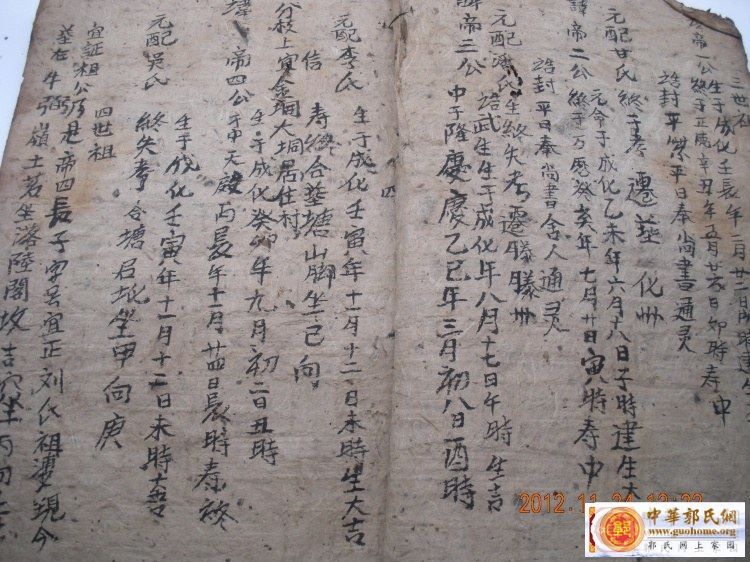 三世祖
帝一公生于成化壬辰年二月廿二日
終于正德辛丑年五月廿五日卯時寿中
誥封平 平日奉尚書通灵
元配甘氏終 遷莹化州
元命于成化乙未年六月十八日子時建生
諱帝二公終于万歷癸亥年七月廿日寅時寿中
誥封平日奉尚書舍人通灵
元配潘氏生終失考遷滕滕州
武生生于成化年八月十七日午時生吉
帝三公中于隆慶慶乙巳年三月初八日酉時
四
元配李氏生于成化壬寅年十一月十二日未時生大吉
信寿終合墓塘山脚坐己向
分枝上宜金垌大垌居住村
帝四公生于成化癸卯年九月初二日丑時
天啟丙辰年十一月廿四日辰時寿終
元配吳氏生于成化壬寅年十一月十二日未時士書
終失考合塘 坐甲向庚
四世祖
宜証祖公 是帝四長子 宜正刘氏祖婆現今
墓在牛 嶺土名坐落陸閣坟吉穴坐丙向
2012.11.24 12:22
中華郭氏網
www.guohome.org
郭氏网上家园